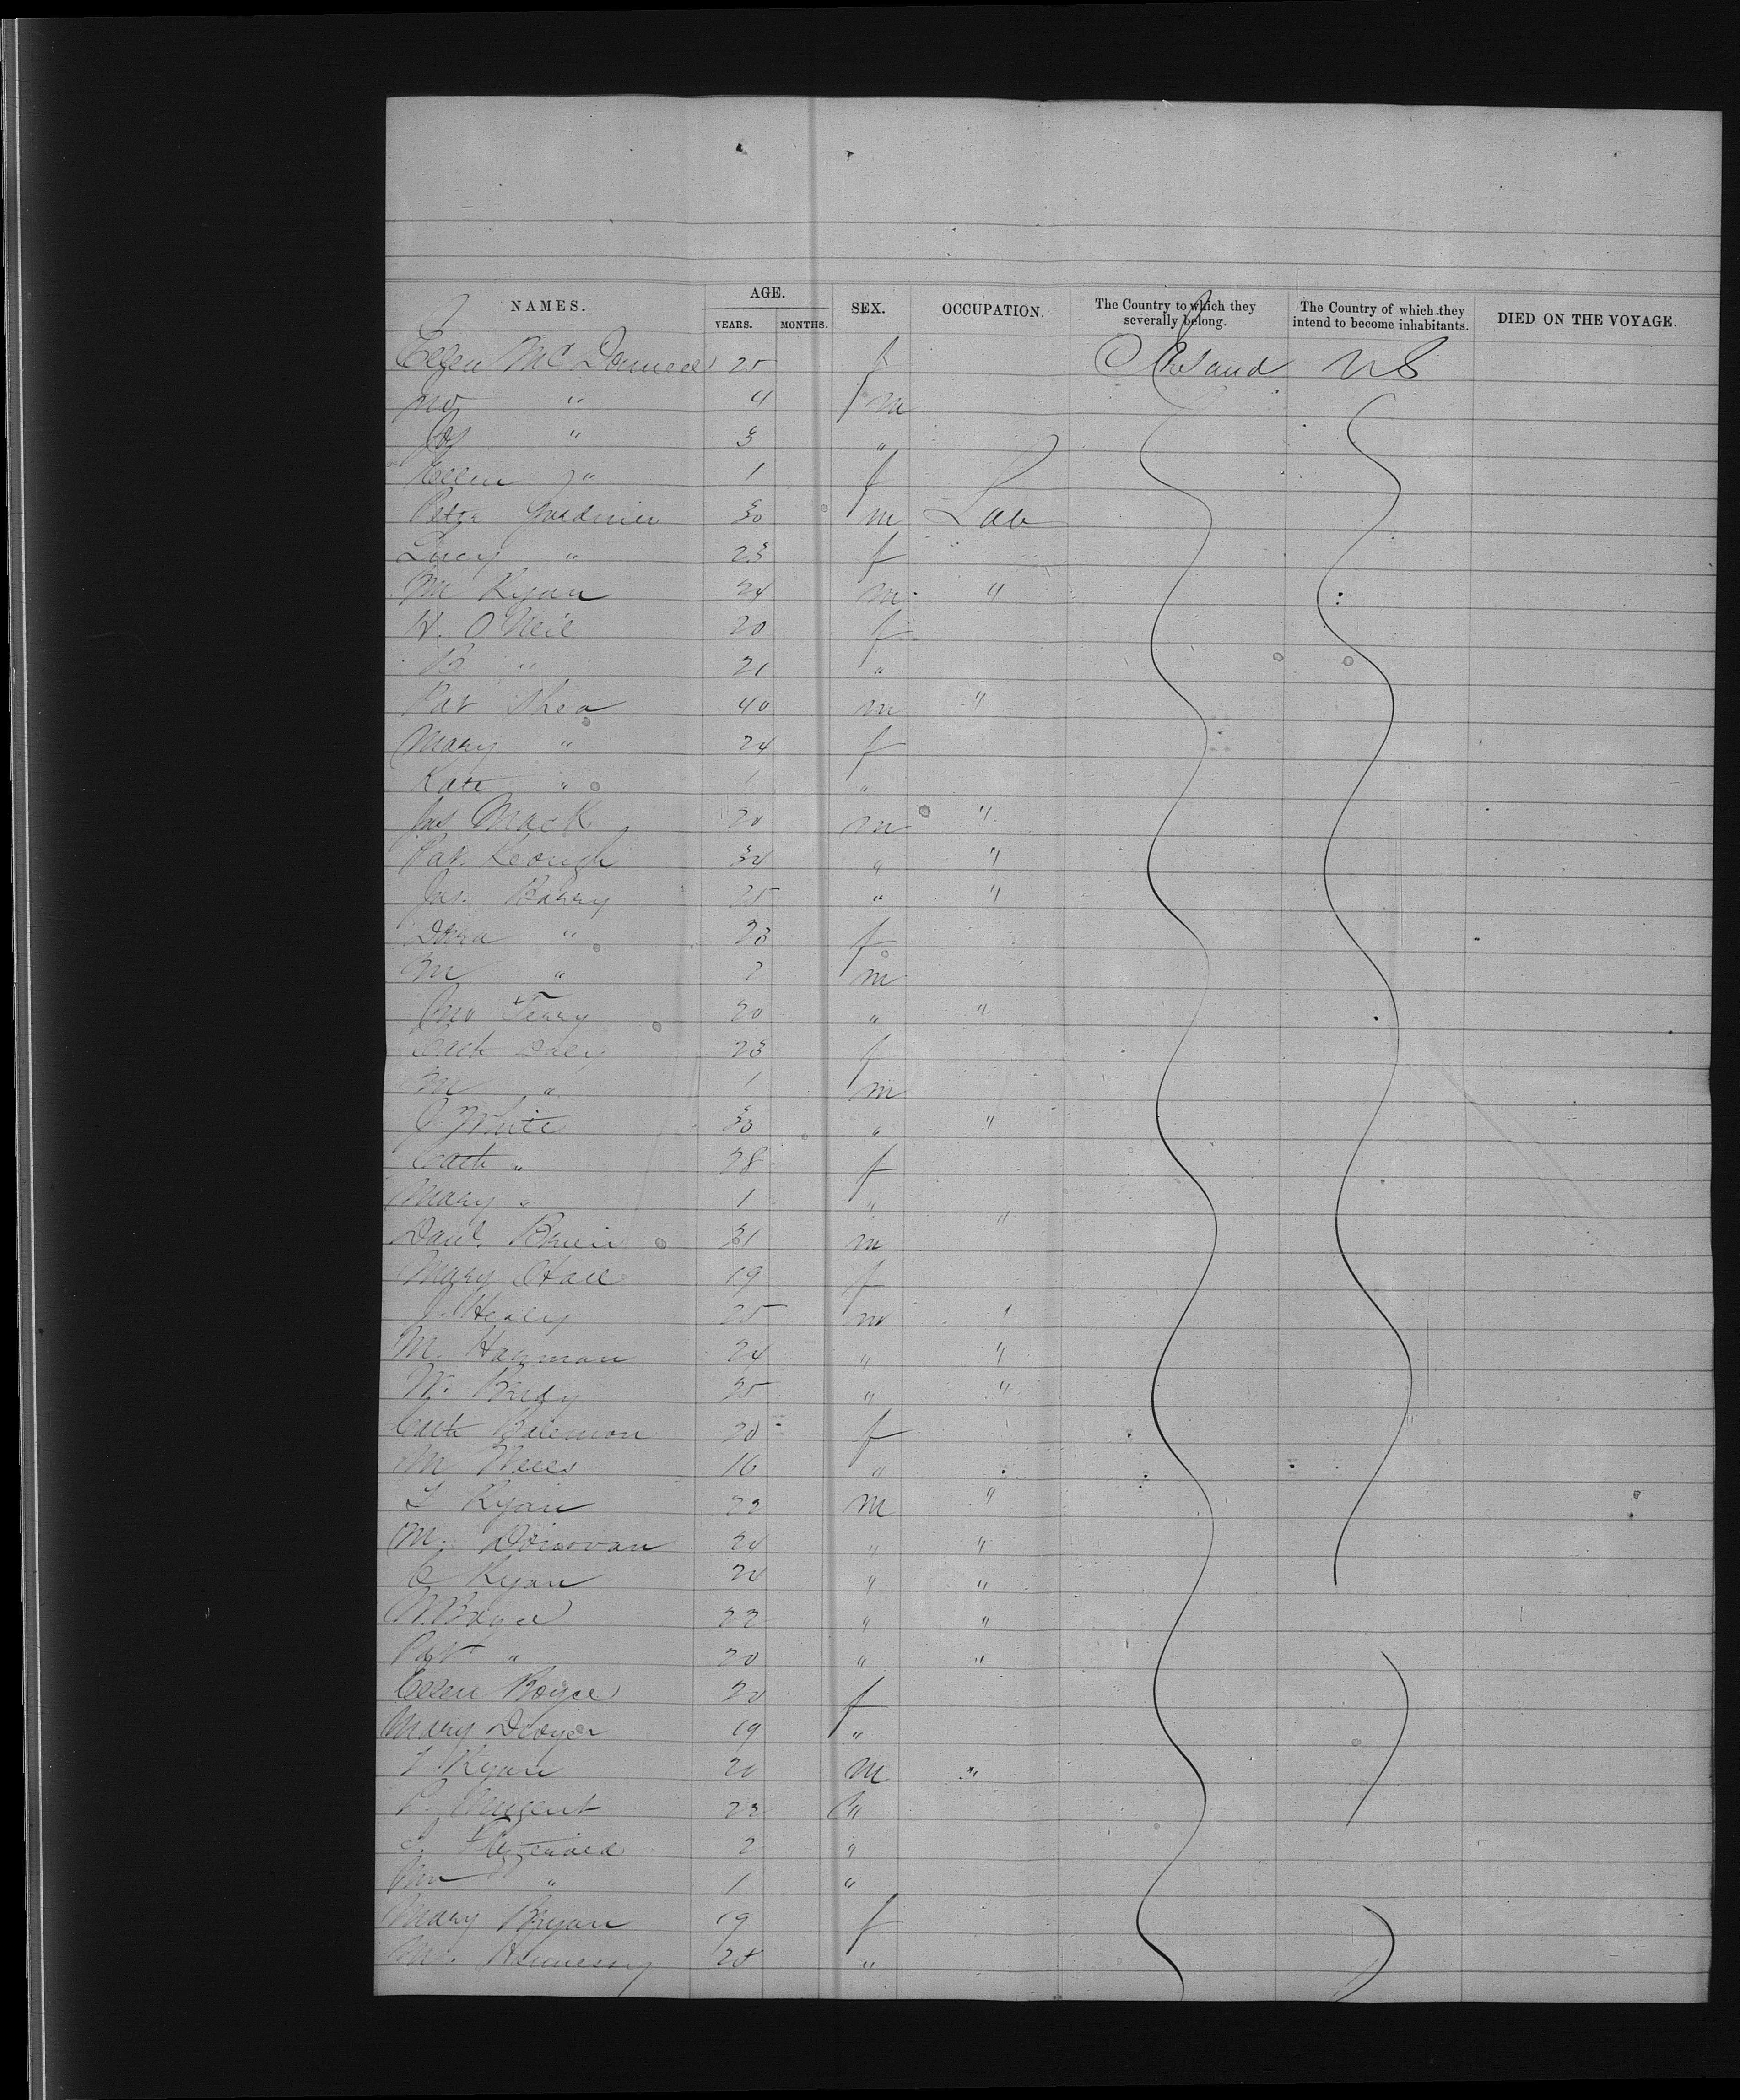 NAMES. AGE. SEX. OCCUPATION. The Country to which they severally belong. The Country of which they intend to become inhabitants. DIED ON THE VOYAGE.
YEARS. MONTHS.
Ellen McDonnell 25 f Ireland US
Jno " 4 m
Jos " 3 "
Ellen " 1 f
Peter Gardiner 30 m Lab
Lucy " 23 f
M Ryan 24 m "
W. O Neil 20 f
B " 21 "
Pat Shea 40 m "
Mary " 24 f
Kate " 1 "
Jas Mack 20 m "
Pat. Keough 34 " "
Jas. Barry 25 " "
Dora " 23 f
M " 2 m
Jno Terry 20 " "
Cath Daly 23 f
M " 1 m
J White 30 " "
Cath " 28 f
Mary " 1 " "
Danl. Brien 31 m
Mary Hall 19 f
J. Healy 25 m "
M. Hannon 24 " "
W. Brady 25 " "
Cath 20 f
M Neill 16 "
T Ryan 22 m "
M. Donovan 24 " "
C Ryan 24 " "
N. Boyce 22 " "
Pat " 20 " "
Ellen Boyce 20 f
Mary Dwyer 19 "
T Ryan 20 m "
P. Nugent 22 "
2 "
" 1 "
Mary Bryan 19 f
M. Hennessy 25 "